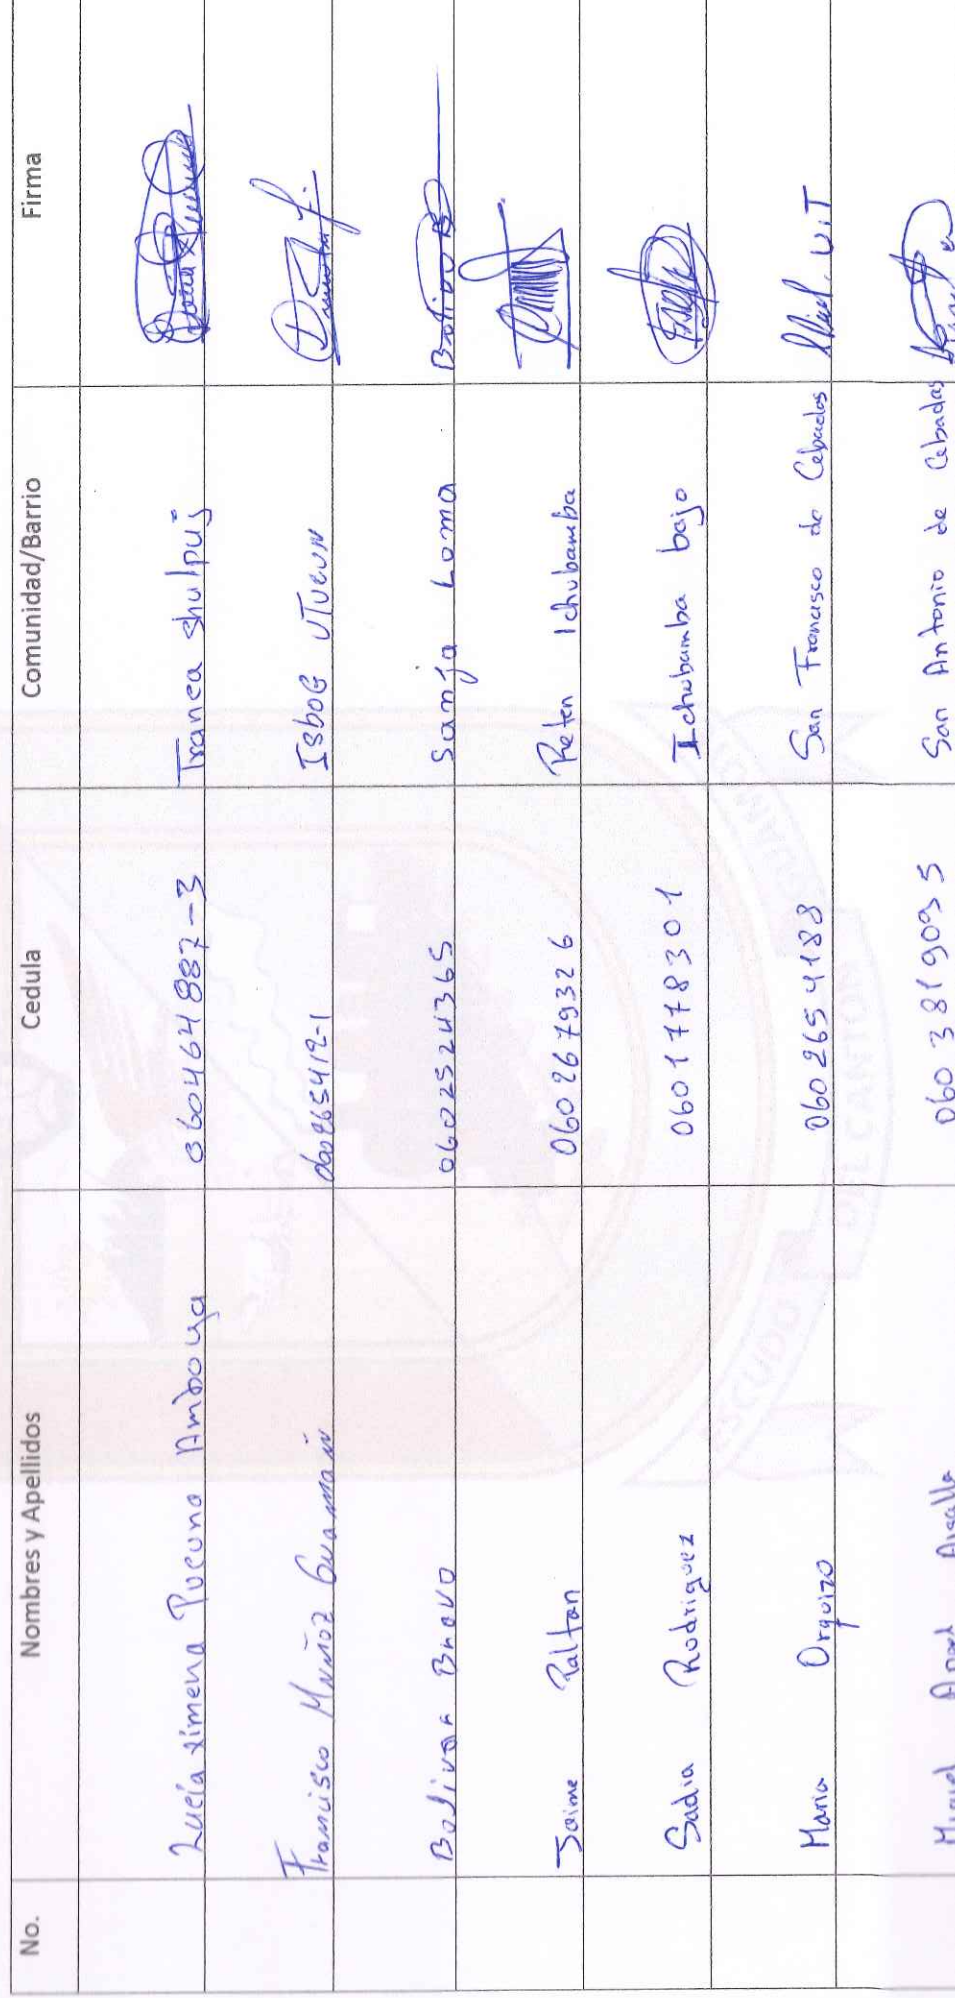 No. Nombres y Apellidos Cedula Comunidad/Barrio Firma
Lucía Ximena Pucuna Amboya 060464887-3 Tranca Shulpuj
Francisco Muñoz Guamán 060265412-1 Isbog Utucun
Bolivar Bravo 0602524365 Sanja Loma Bolivar B
Jaime Paltan 0602679326 Reten Ichubamba
Sadia Rodriguez 0601778301 Ichubamba bajo
Maria Orquizo 0602654188 San Francisco de Cebadas
Miguel Angel Aisalla 0603819095 San Antonio de Cebadas
ESCUDO DEL CANTON